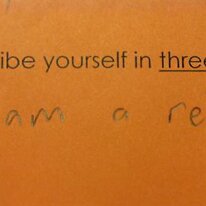 ibe yourself in three
am a re